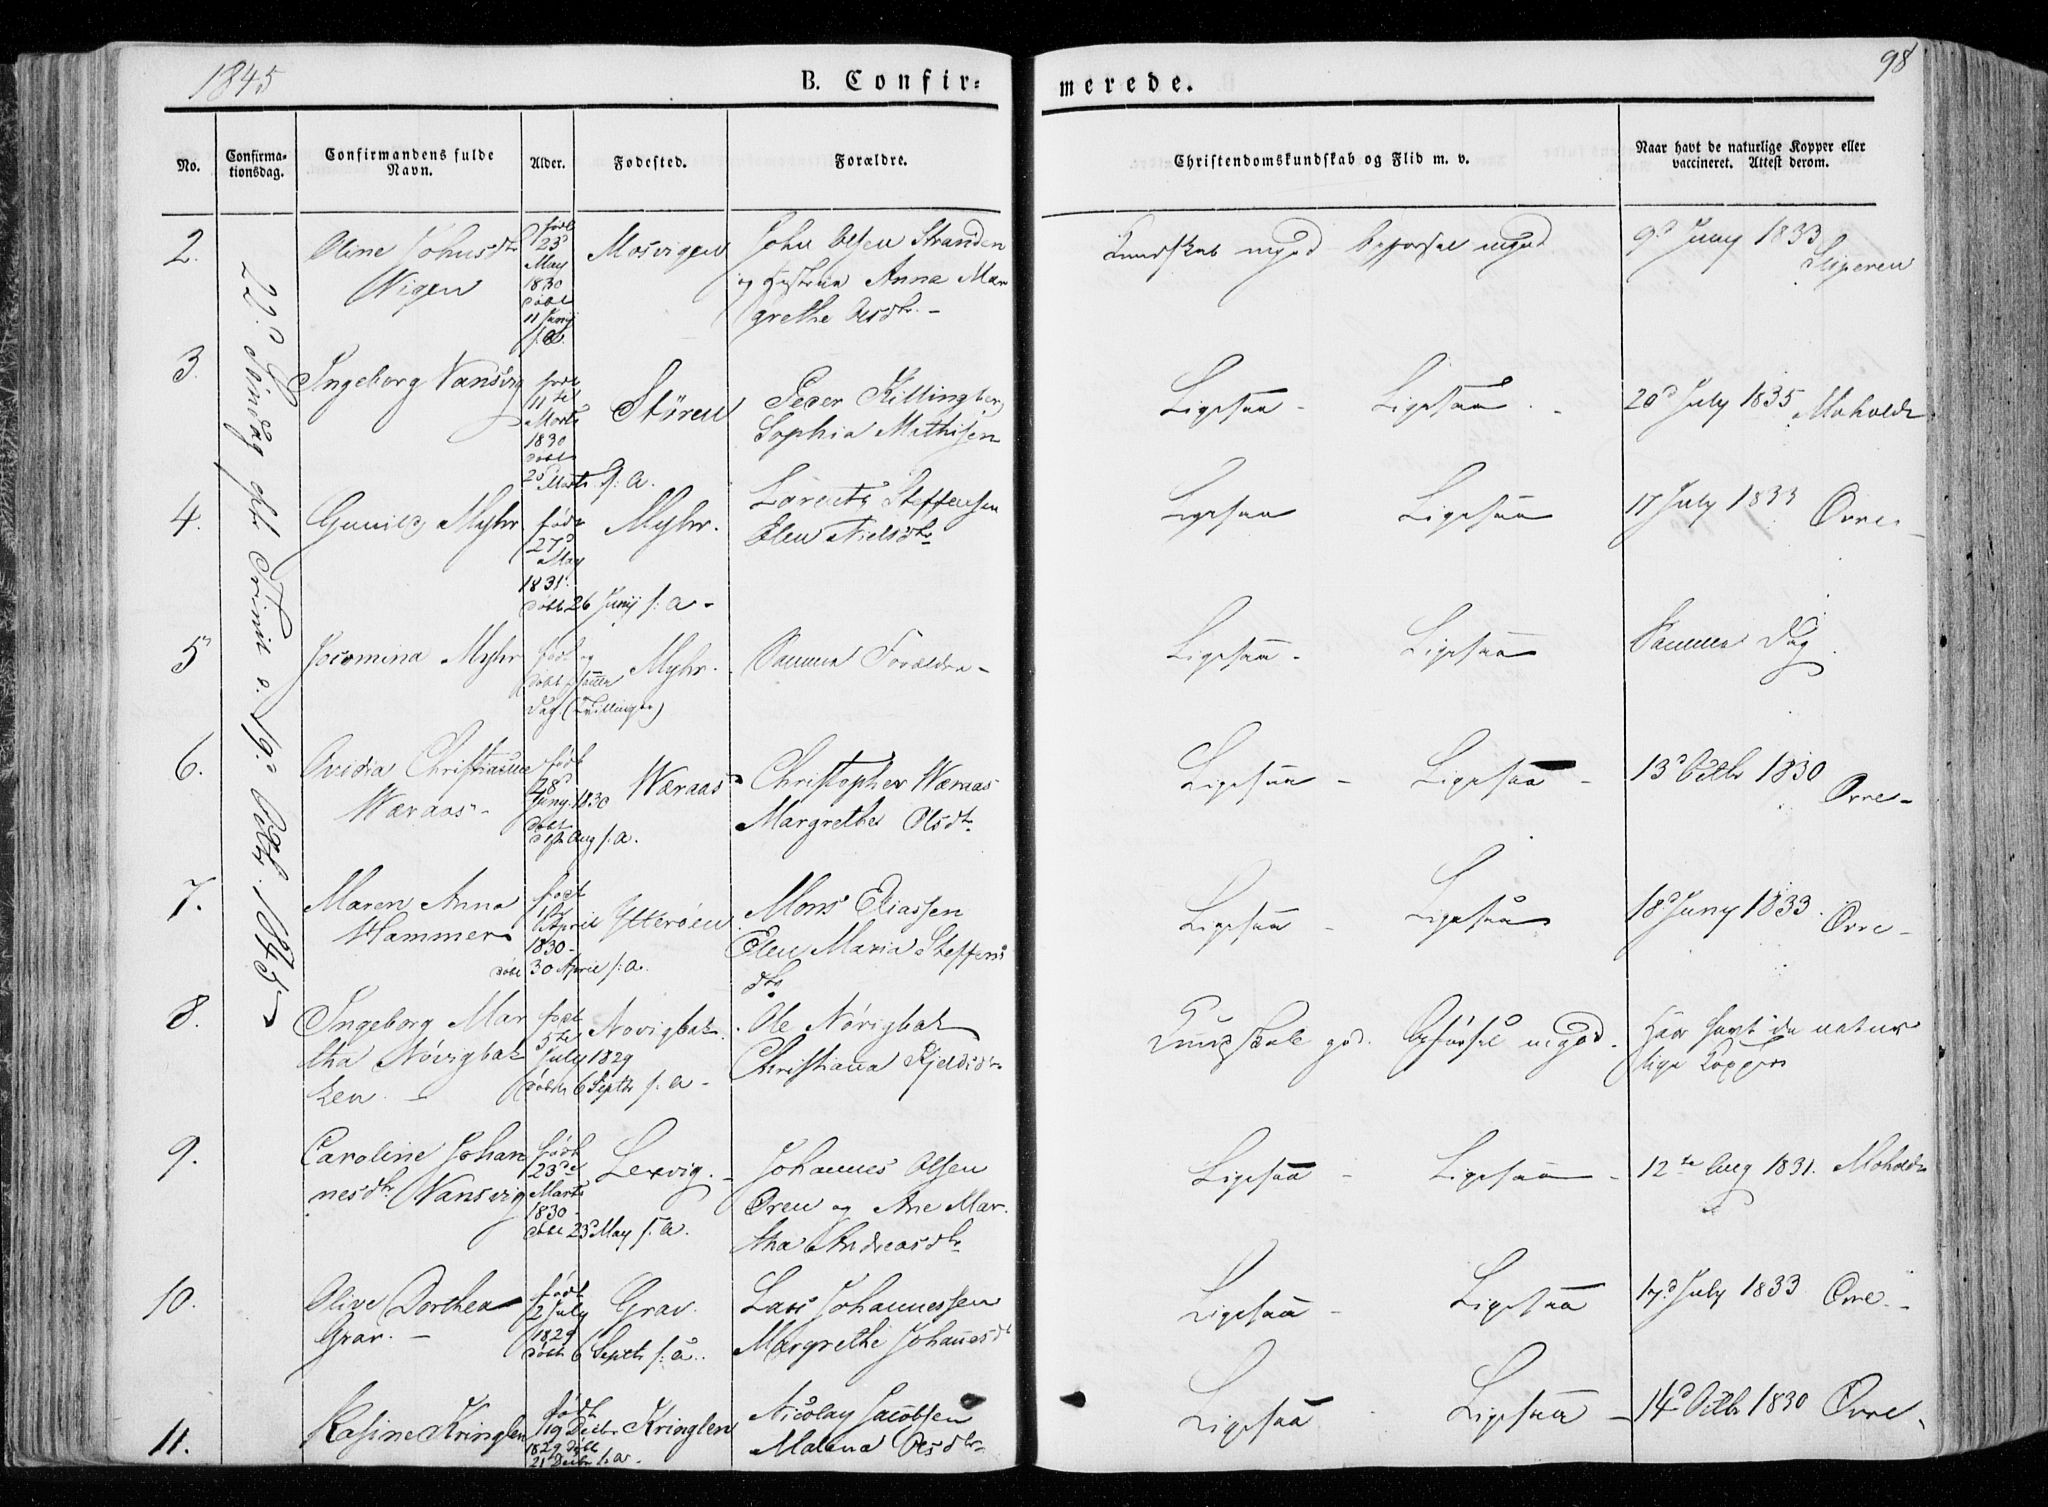 1845
B. Confir=
merede.
98
No.
Confirma-
tionsdag.
Confirmandens fulde
Navn.
Alder.
Fødested.
Forældre.
Christendomskundskab og Flid m. v.
Naar havt de naturlige Kopper eller
vaccineret. Attest derom.
22d Søndag efter Trinit: d. 19d Octb. 1845
2.
Oline Johnsdtr
Vigen
født
23d
May
1830
døbt
11 Junij
s: a.
Mosvigen
John Olsen Stranden
og Hustrue Anna Mar
grethe Olsdtr. -
Kundskab mgod Opførsel mgod
9d Juny 1833
3.
Ingeborg Vansvig
født
11te
Marts
1830
døbt
25 Marts s: a.
Støren
Peder Killingber
Sophia Mathisen
Ligesaa - Ligesaa -
20d July 1835 Moholdt
4.
Gunild Myhr
født
27d
May
1831
døbt 26 Junij s: a -
Myhr.
Lorents Steffensen
Elen Nielsdtr
Ligesaa Ligesaa
17 July 1833 Ovre -
5
Jocomina Myhr
født og
døbt samme
Dag (Tvillinger)
Myhr.
Samme Forældre -
Ligesaa - Ligesaa
Samme Dag.
6.
Ovidia Christianna
Væraas -
født
28d
Juny 1830
døbt
d 1ste Aug s: a.
Væraas
Christopher Væraas
Margrethe Olsdtr.
Ligesaa - Ligesaa -
13d Octb 1830
Ovre -
7.
Maren Anna
Hammer
født
1ste
April
1830 -
døbt 30 April s: a.
Ytterøen
Mons Eliassen
Elen Maria Steffens
dtr.
Ligesaa - Ligesaa
18d Juny 1833.
Ovre -
8.
Ingeborg Mar
tha Nøvigbak
ken. -
født
5te
July 1829
døbt 6 Septbr s: a -
Novigbak.
Ole Nøvigbak
Christiana Kjeldsdtr
Kundskab god. Opførsel mgod.
Har havt de natur
lige Kopper
9.
Caroline Johan
nesdtr. Vansvig
født
23de
Marts
1830 -
døbt 23 May s: a.
Lexvig. -
Johannes Olsen
Øren og Ane Mar
tha Andreasdtr
Ligesaa - Ligesaa -
12te Aug 1831. Moholdt
10.
Olive Dorthea
Grav. -
født
2 July
1829
døbt 6 Septb s: a.
Grav.
Lars Johannessen
Margrethe Johanesdt
Ligesaa - Ligesaa
17d July 1833 Ovre. -
11.
Rasine Kringlen
født
19 Decbr
1829 døbt
21 Decbr s: a -
Kringlen
Nicolay Jacobsen
Malena Olsdtr
Ligesaa Ligesaa -
14d Octb 1830 Ovre -